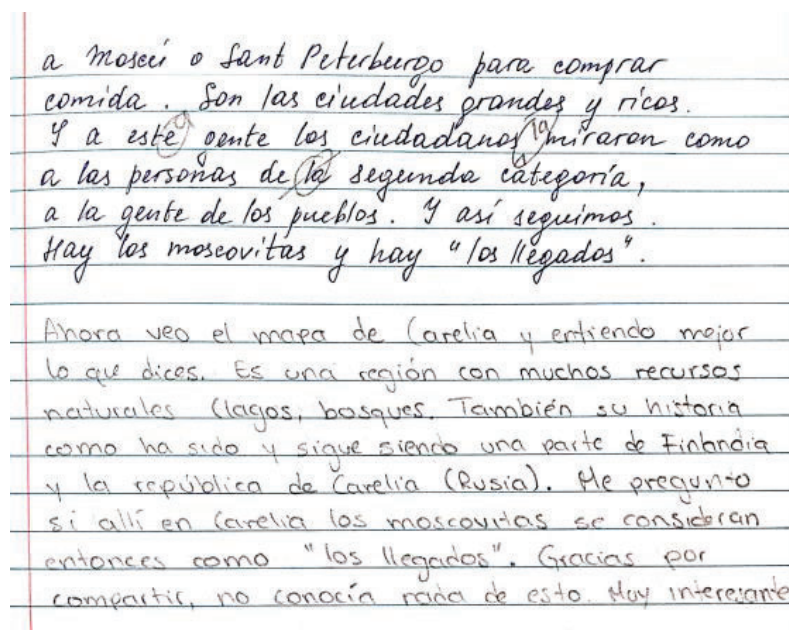 a Moscú o Sant Peterburgo para comprar
comida. Son las ciudades grandes y ricos.
Y a este a gente los ciudadanos la miraron como
a las personas de la segunda categoría,
a la gente de los pueblos. Y así seguimos.
Hay los moscovitas y hay "los llegados".
Ahora veo el mapa de Carelia y entiendo mejor
lo que dices. Es una región con muchos recursos
naturales (lagos, bosques. También su historia
como ha sido y sigue siendo una parte de Finlandia
y la república de Carelia (Rusia). Me pregunto
si allí en Carelia los moscovitas se consideran
entonces como "los llegados". Gracias por
compartir, no conocía nada de esto. Muy interesante